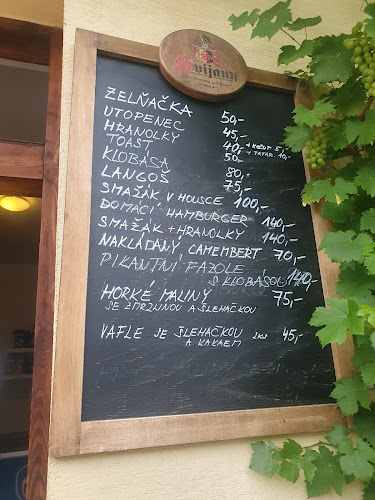 Svijany
ZELŇAČKA 50,-
UTOPENEC 45,-
HRANOLKY 40,- + KEČUP 5,-
TOAST 50,- + TATAR. 10,-
KLOBÁSA 80,-
LANGOŠ 75,-
SMAŽÁK V HOUSCE 100,-
DOMÁCÍ HAMBURGER 140,-
SMAŽÁK + HRANOLKY 140,-
NAKLÁDANÝ CAMEMBERT 70,-
PIKANTNÍ FAZOLE
S KLOBÁSOU 140,-
HORKÉ MALINY 75,-
SE ZMRZLINOU A ŠLEHAČKOU
VAFLE SE ŠLEHAČKOU 2KS 45,-
A KAKAEM